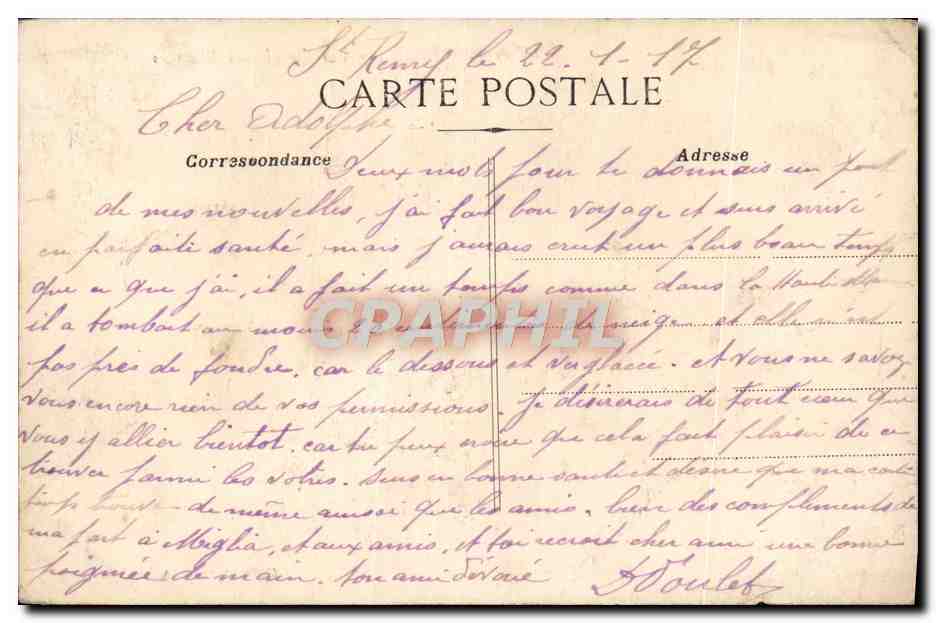 St Remy le 22-1-17
CARTE POSTALE
Cher Adolphe
Correspondance
Adresse
Deux mots pour te donnais un peut
de mes nouvelles, j'ai fait bon voyage et suis arrivé
en parfaite santé. mais j'aurais crut un plus beau temps
que ce que j'ai, il a fait un temps comme dans la Haute
il a tombait au moins 20 centimètres de neige et elle n'est
pas près de fondre. car le dessous et verglacé. et vous ne savez
vous encore rien de vos permissions. Je désirerais de tout cœur que
vous y allier bientot. car tu peux croire que cela fait plaisir de ce
trouver parmi les votres. suis en bonne santé et désire que ma carte
de même aussi que les amis. bien des compliments de
ma part à Miglia, et aux amis, et toi recoit cher ami une bonne
poignée de main. ton ami dévoué
D Poulet
CPAPHIL